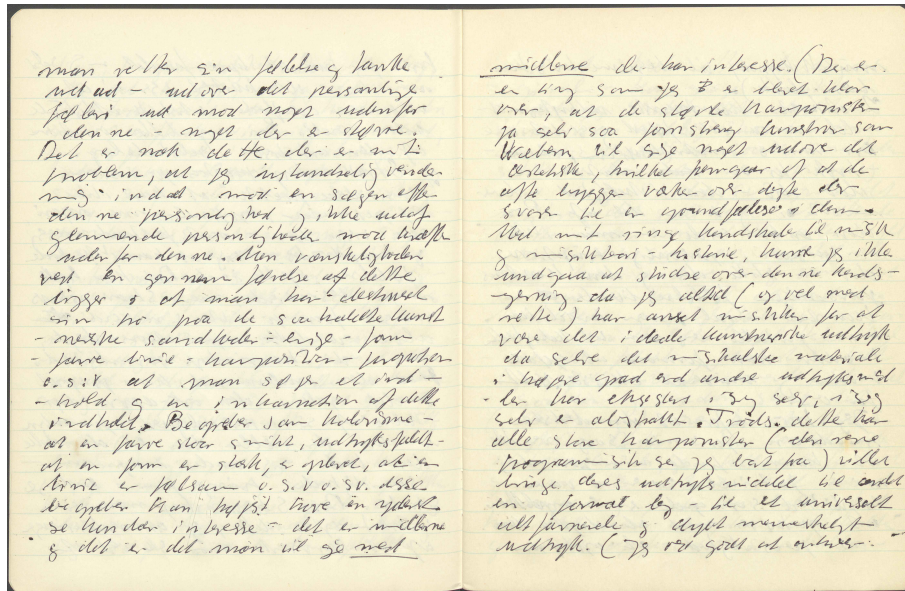 man retter sin følelse og tanke
ud ad - ud over det personlige
føleri ud mod noget udenfor
denne - noget der er større.
Det er nok dette der er mit
problem, at jeg uafladelig vender
mig indad mod en søgen efter
denne personlighed og ikke udaf
glemmende personligheder mod kræfter
udenfor denne. Men vanskeligheden
ved en gennem førelse af dette
ligger i at man har destrueret
sin tro paa de saakaldte kunst
- neriske sandheder - linje - form
- farve linie - komposition - proportion
o.s.v at man søger et ind -
- hold og en inkarnation af dette
indhold. Begreber som kolorisme -
at en farve staar smukt, udtryksfuldt -
at en form er stærk, er oplevet, at en
linie er følsom o.s.v o.sv. disse
begreber kan højst have en yderst
sekundær interesse - det er midlerne
og det er det man vil sige med
midlerne der har interesse. (Der er
en ting som jeg er blevet klar
over, at de største komponister
ja selv saa formstreng kunstner som
Webern vil sige noget udover det
æstetiske, hvilket fremgaar af at de
ofte bygger værker over digte der
svarer til en grundfølelse i dem.
Med mit ringe kendskab til musik
og musikteori - historie, kunde jeg ikke
undgaa at studse over denne kends-
gerning da jeg altid (og vel med
rette) har anset musikken for at
være det ideale kunstneriske udtryk
da selve det musikalske materiale
i højere grad end andre udtryksmid
- ler har eksistens i sig selv, i sig
selv er abstrakt. Trods dette har
alle store komponister (den rene
programmusik ser jeg bort fra) villet
bruge deres udtryksmiddel til andet
en formal leg - til et universelt
altfavnende og dybt menneskeligt
udtryk. (Jeg ved godt at enhver